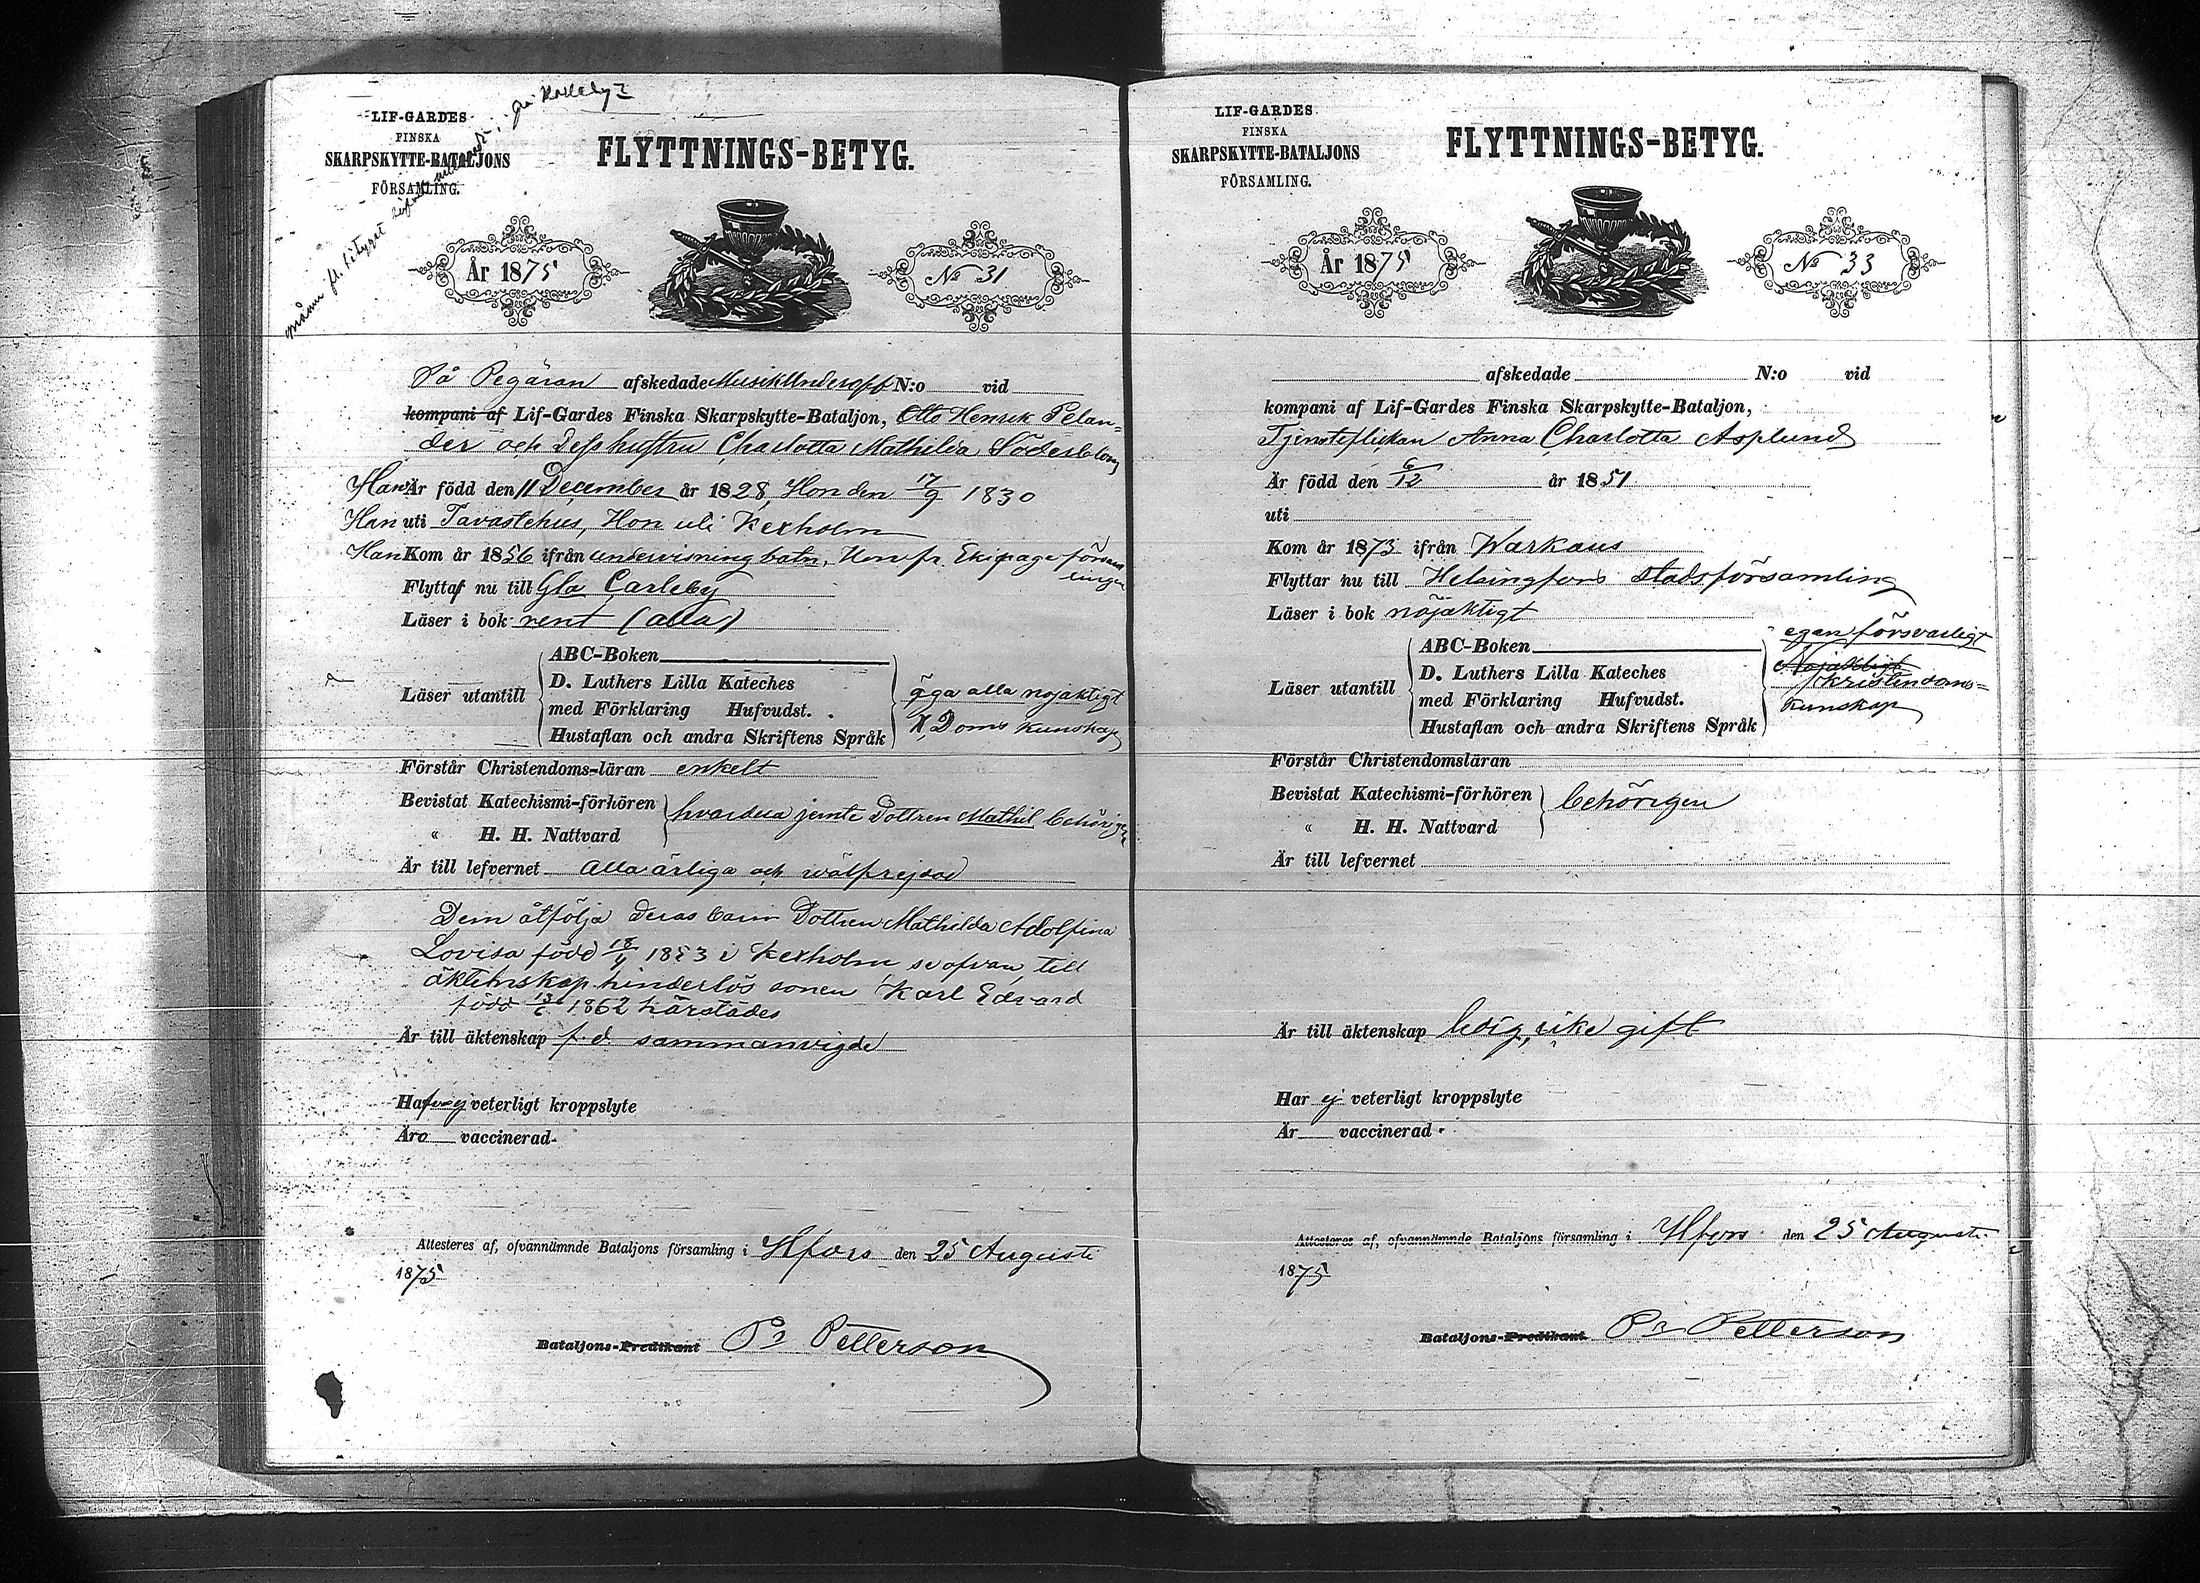 LIF-GARDES
FINSKA
SKARPSKYTTE-BATALJONS
FÖRSAMLING.
FLYTTNINGS-BETYG.
År 1875
No 31
På Begäran afskedade MusikUnderoff N:o vid
kompani af Lif-Gardes Finska Skarpskytte-Bataljon, Otto Henrik Pelan=
der och Dess hustru Charlotta Mathilda Söderblom
Han Är född den 11 December år 1828, Hon den 17/9 1830
Han uti Tavastehus, Hon uti Kexholm
Han Kom år 1856 ifrån undervisningbatn, Hon fr. Ekipageförsam
lingen
Flyttar nu till Gla Carleby
Läser i bok rent (alla)
Läser utantill
ABC-Boken
D. Luthers Lilla Kateches
med Förklaring Hufvudst.
Hustaflan och andra Skriftens Språk
äga alla nöjaktigt
X Doms kunskap
Förstår Christendoms-läran enkelt
Bevistat Katechismi-förhören
" H. H. Nattvard
hvardera jemte Dottren Mathil behörigen
Är till lefvernet Alla ärliga och wälfrejdad
Dem åtfölja deras barn Dottren Mathilda Adolfina
Lovisa född 18/4 1853 i Kexholm se ofvan, till
äktenskap hinderlös sonen Karl Edvard
född 13/6 1862 härstädes
Är till äktenskap f. d. sammanvigde
Hafva ej veterligt kroppslyte
Äro vaccinerad
Attesteras af, ofvannämnde Bataljons församling i Hfors den 25 Augusti
1875
Bataljons-Predikant Petterson
LIF-GARDES
FINSKA
SKARPSKYTTE-BATALJONS
FÖRSAMLING.
FLYTTNINGS-BETYG.
År 1875
No 33
afskedade N:o vid
kompani af Lif-Gardes Finska Skarpskytte-Bataljon,
Tjensteflickan Anna Charlotta Asplund
Är född den 6/12 år 1851
uti
Kom år 1873 ifrån Warkaus
Flyttar nu till Helsingfors stadsförsamling
Läser i bok nöjaktigt
Läser utantill
ABC-Boken
D. Luthers Lilla Kateches
med Förklaring Hufvudst.
Hustaflan och andra Skriftens Språk
egen försvarligt
Nöjaktigt
kristendoms=
kunskap
Förstår Christendomsläran
Bevistat Katechismi-förhören
" H. H. Nattvard
behörigen
Är till lefvernet
Är till äktenskap ledig, icke gift
Har ej veterligt kroppslyte
Är vaccinerad
Attesteras af, ofvannämnde Bataljons församling i Hfors den 25 Augusti
1875
Bataljons-Predikant Petterson